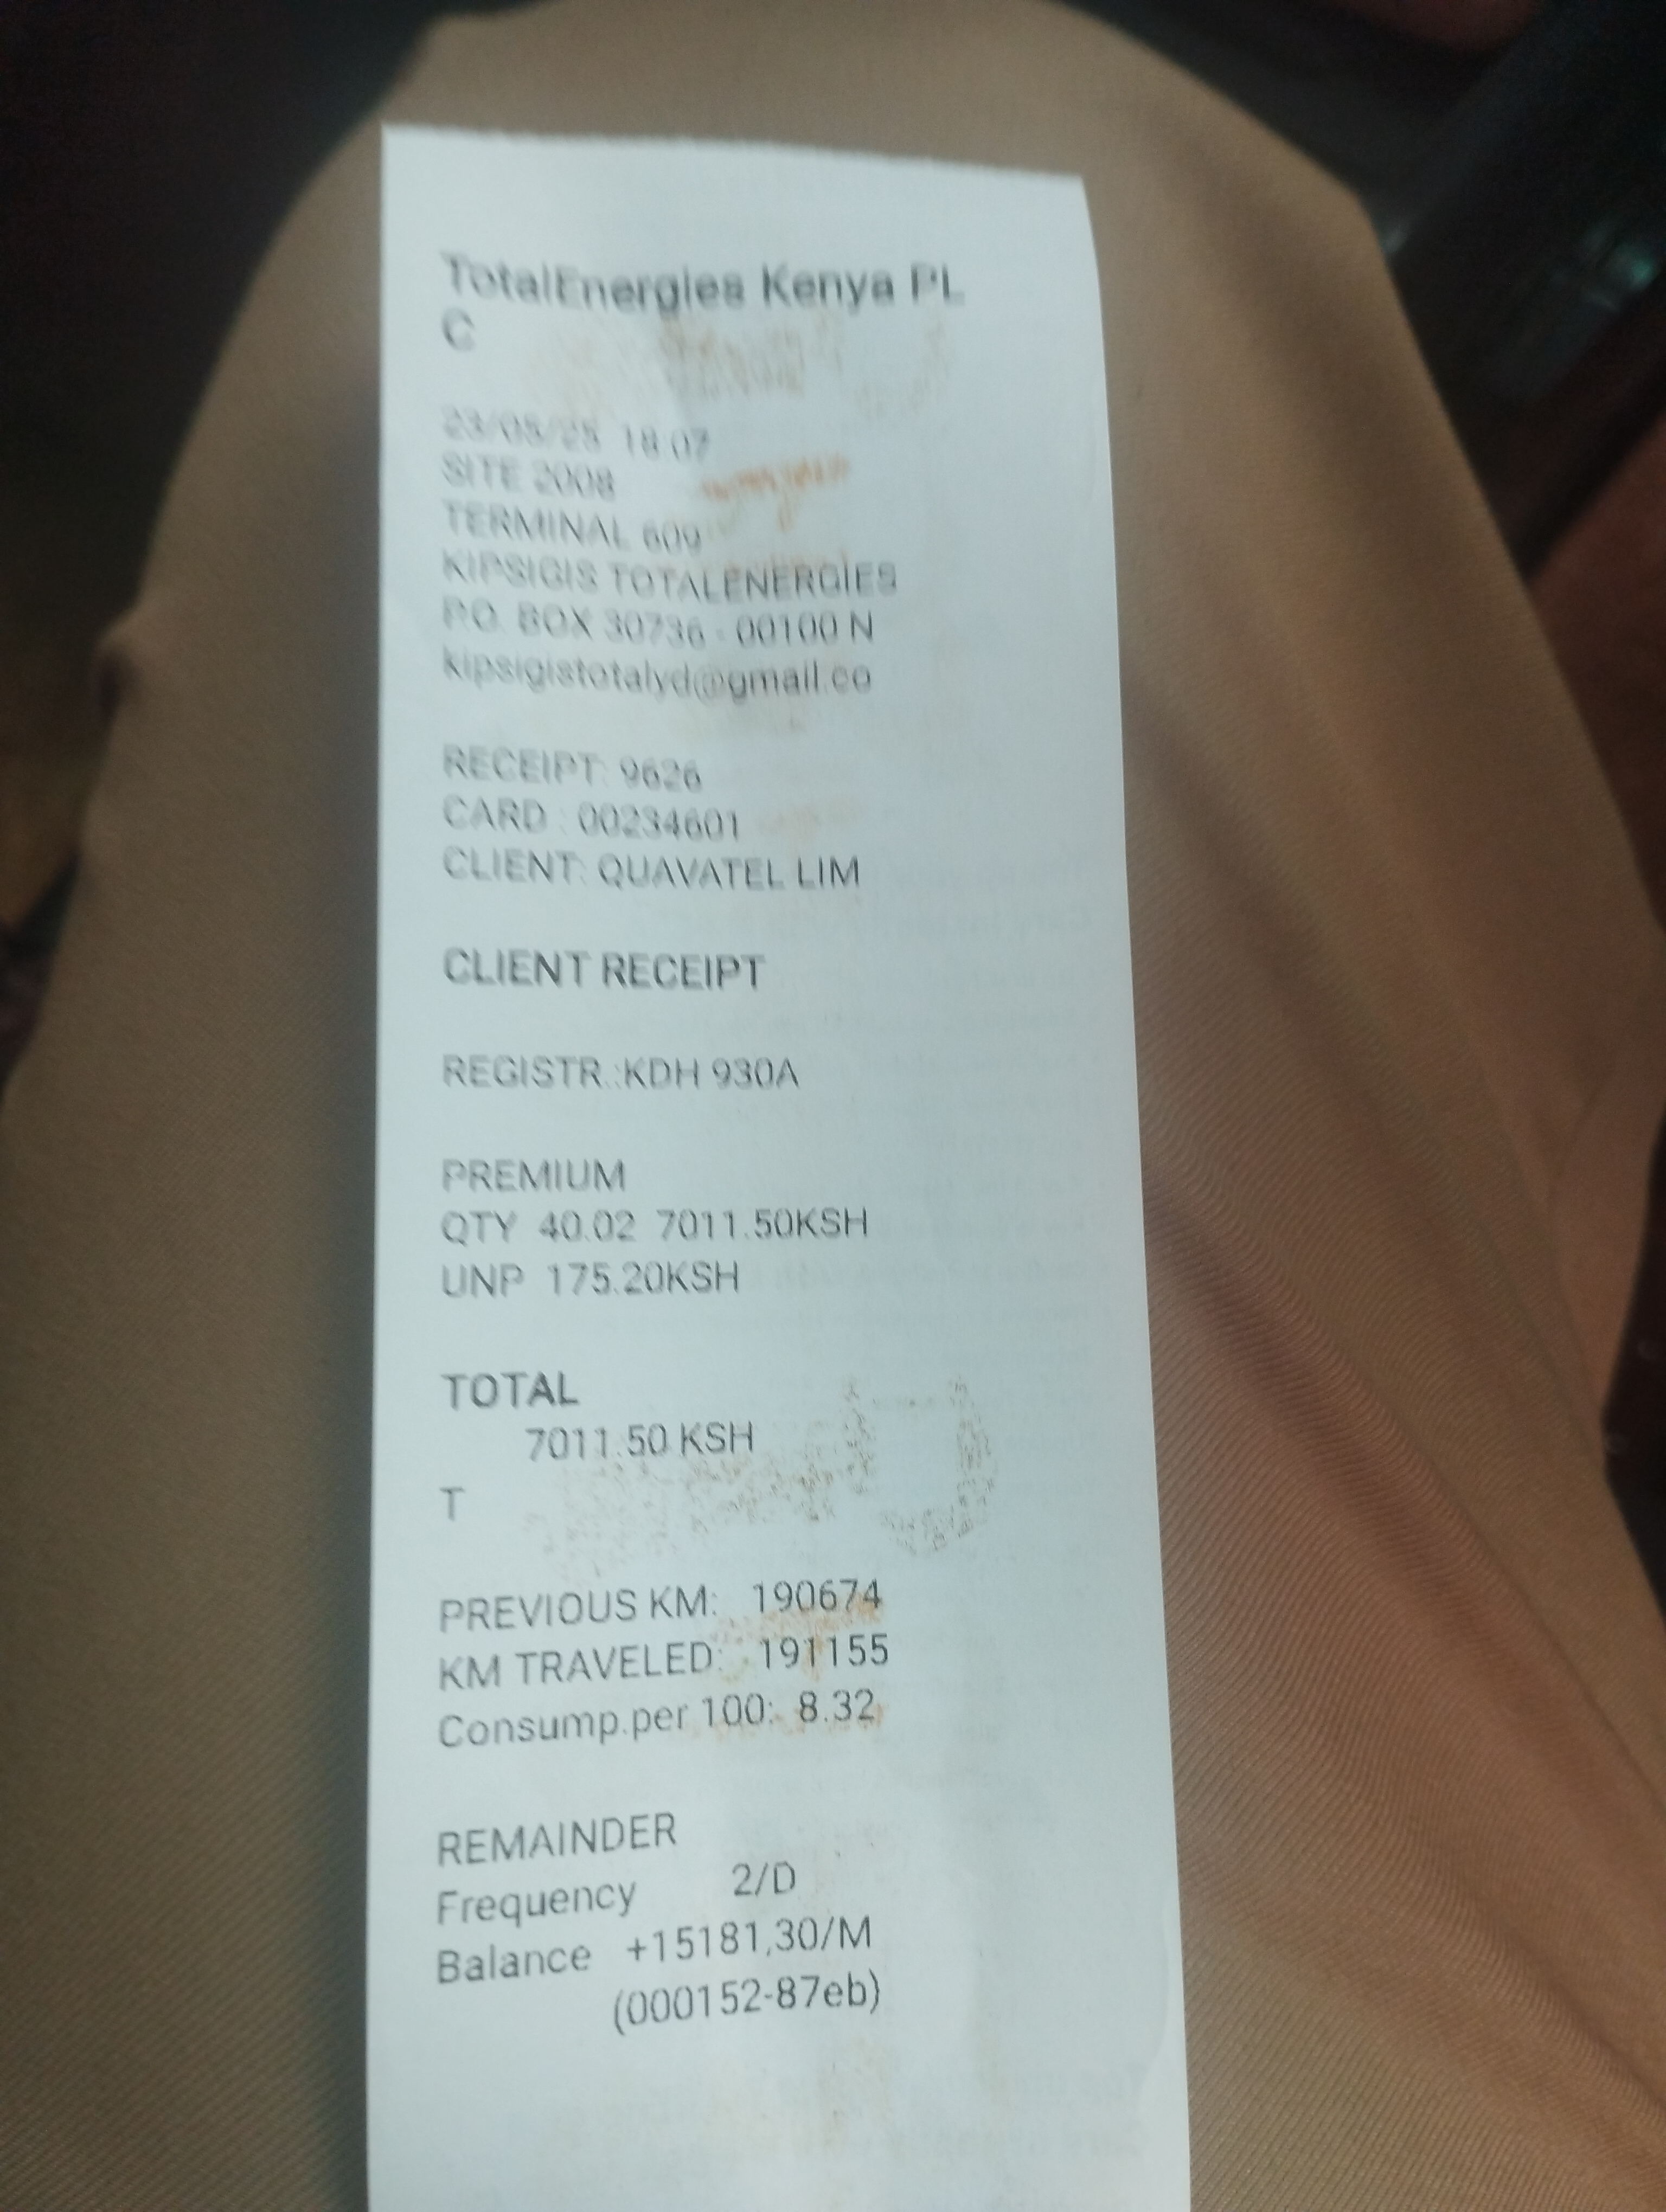 TotalEnergies Kenya PL
C
23/05/25 18:07
SITE 2008
TERMINAL 609
KIPSIGIS TOTALENERGIES
P.O. BOX 30736 - 00100 N
kipsigistotalyd@gmail.co
RECEIPT: 9626
CARD : 00234601
CLIENT: QUAVATEL LIM
CLIENT RECEIPT
REGISTR.:KDH 930A
PREMIUM
QTY 40.02 7011.50KSH
UNP 175.20KSH
TOTAL
7011.50 KSH
T
PREVIOUS KM: 190674
KM TRAVELED: 191155
Consump.per 100: 8.32
REMAINDER
Frequency 2/D
Balance +15181,30/M
(000152-87eb)